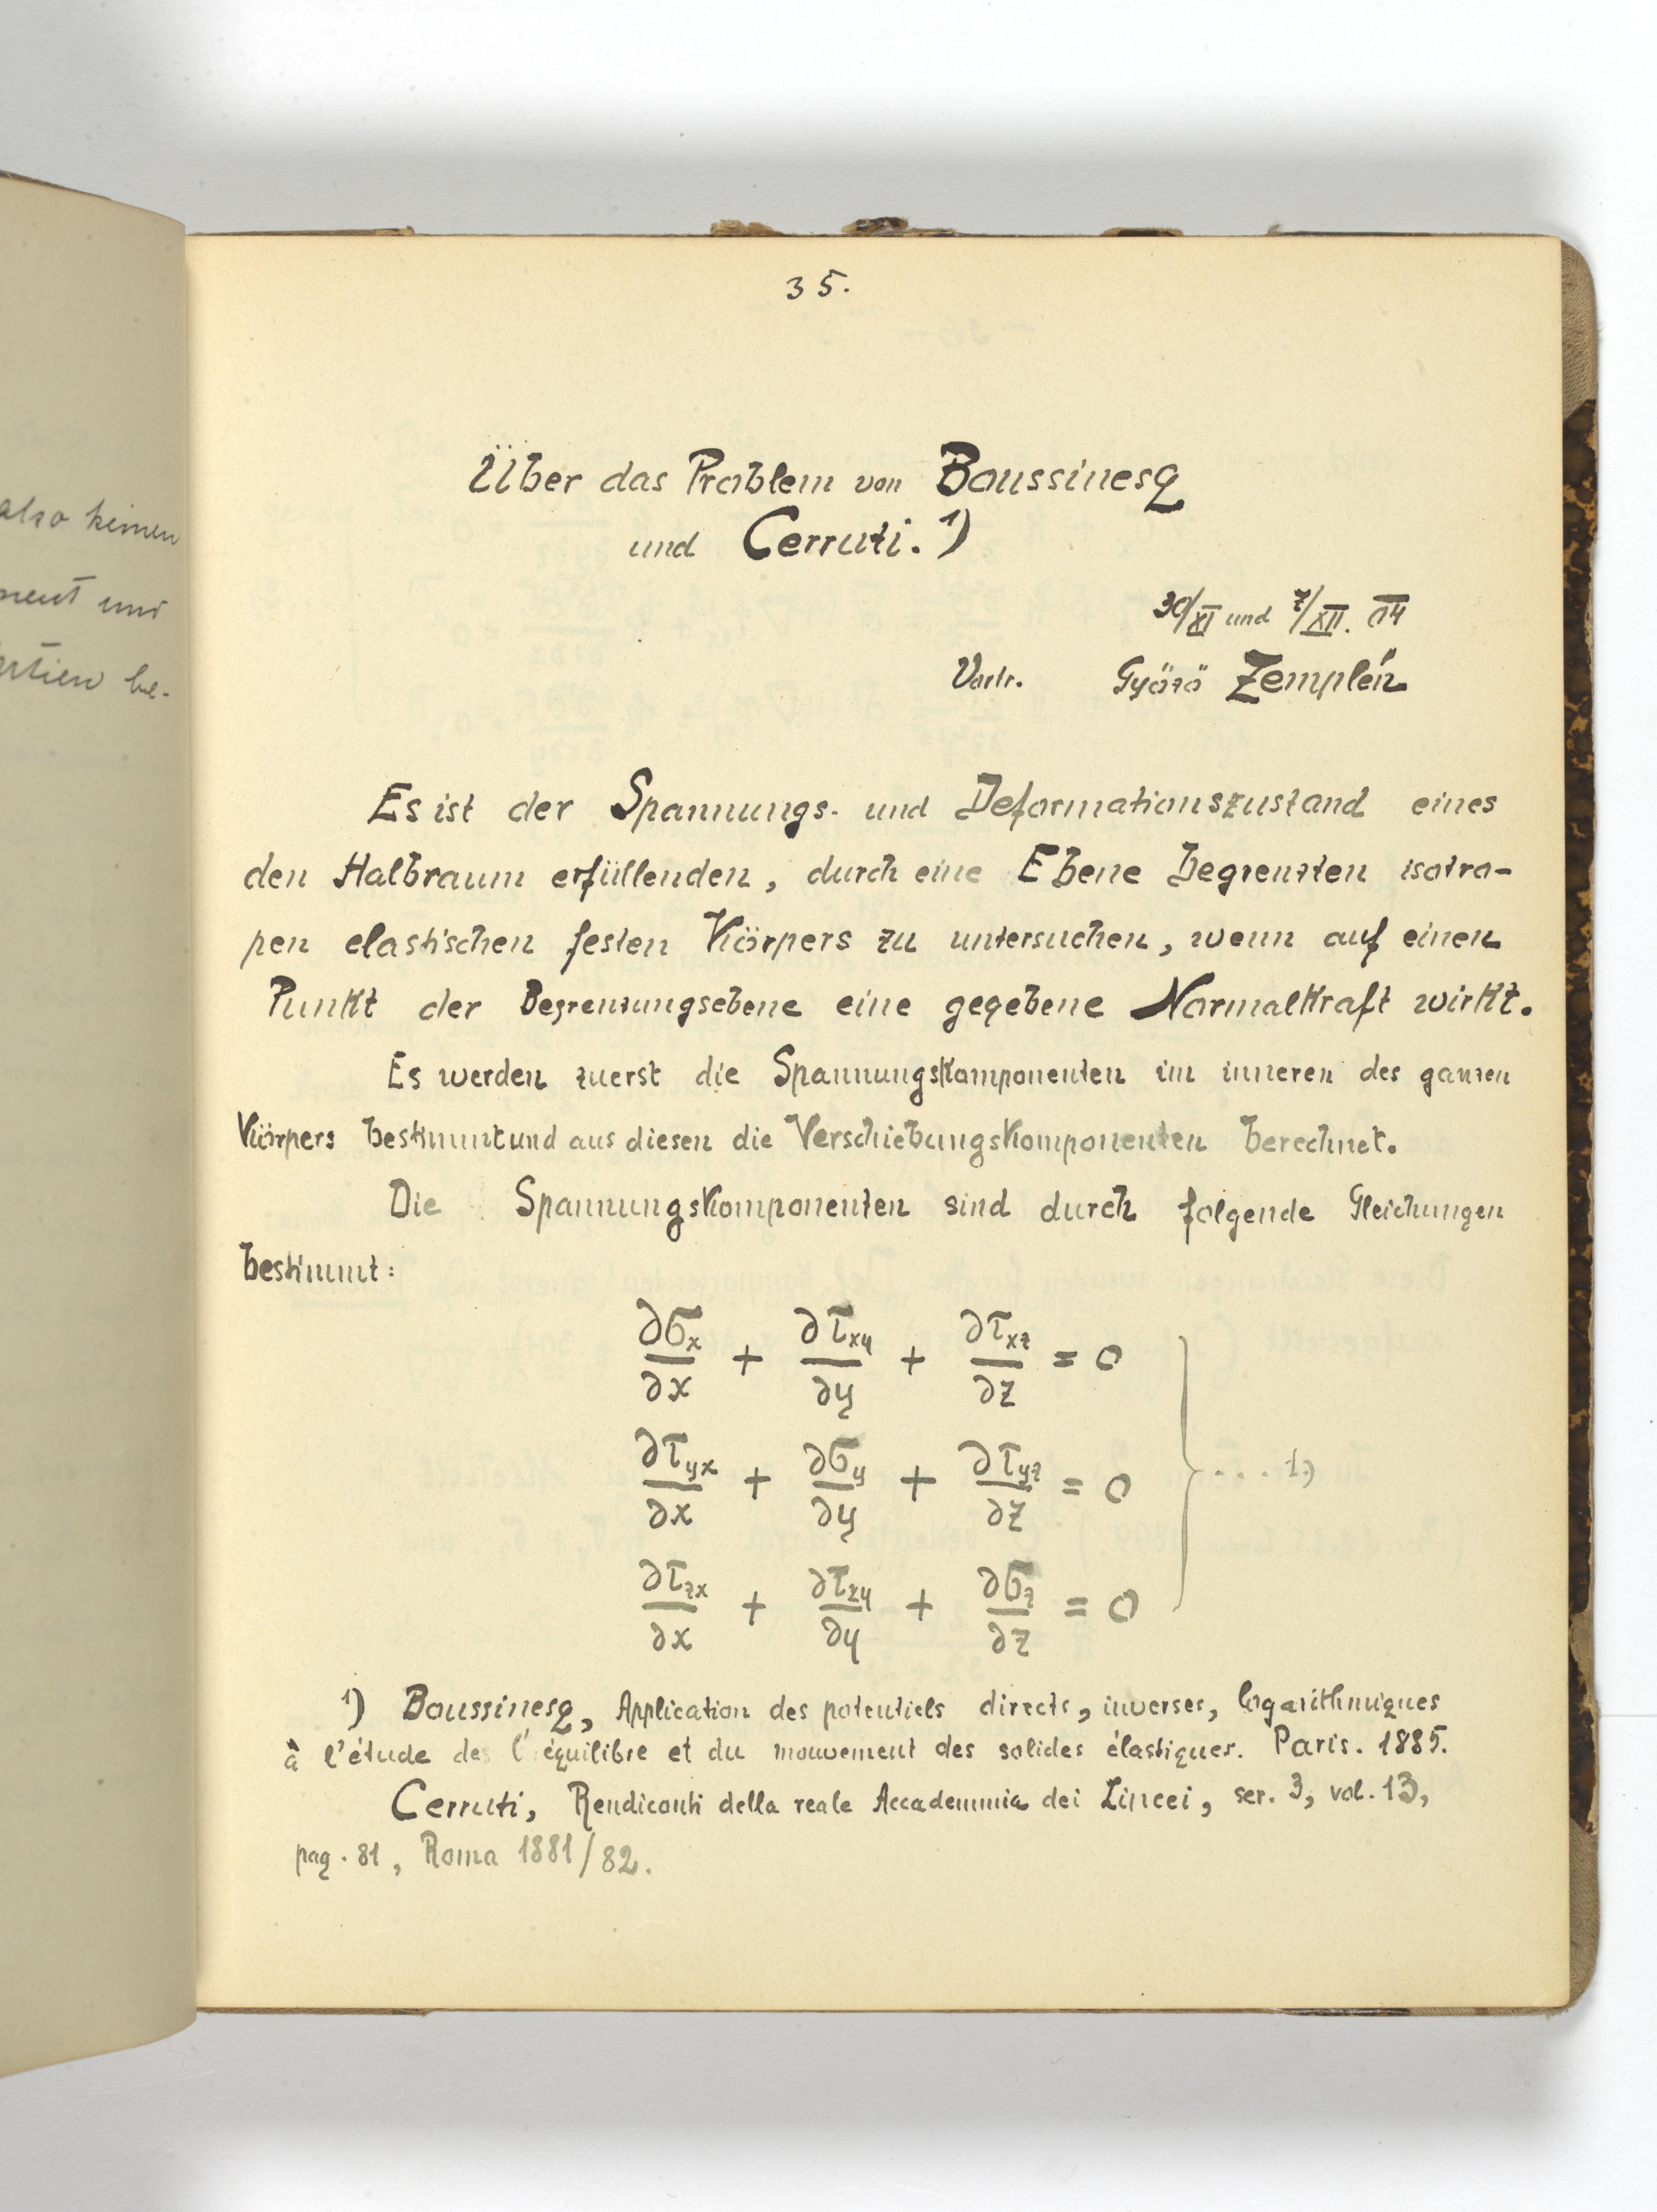 also keinen
nent und
be-
35.
Über das Problem von Boussinesq
und Cerruti. 1)
30/XI und 7/XII. 04
Vortr. Győző Zemplén
Es ist der Spannungs- und Deformationszustand eines
den Halbraum erfüllenden, durch eine Ebene begrenzten isotro-
pen elastischen festen Körpers zu untersuchen, wenn auf einen
Punkt der Begrenzungsebene eine gegebene Normalkraft wirkt.
Es werden zuerst die Spannungskomponenten im inneren des ganzen
Körpers bestimmt und aus diesen die Verschiebungskomponenten berechnet.
Die Spannungskomponenten sind durch folgende Gleichungen
bestimmt:
∂σx/∂x + ∂τxy/∂y + ∂τxz/∂z = 0
∂τyx/∂x + ∂σy/∂y + ∂τyz/∂z = 0 } . . . 1.)
∂τzx/∂x + ∂τzy/∂y + ∂σz/∂z = 0
1) Boussinesq, Application des potentiels directs, inverses, logarithmiques
à l'étude de l'équilibre et du mouvement des solides élastiques. Paris. 1885.
Cerruti, Rendiconti della reale Accademmia dei Lincei, ser. 3, vol. 13,
pag. 81, Roma 1881/82.